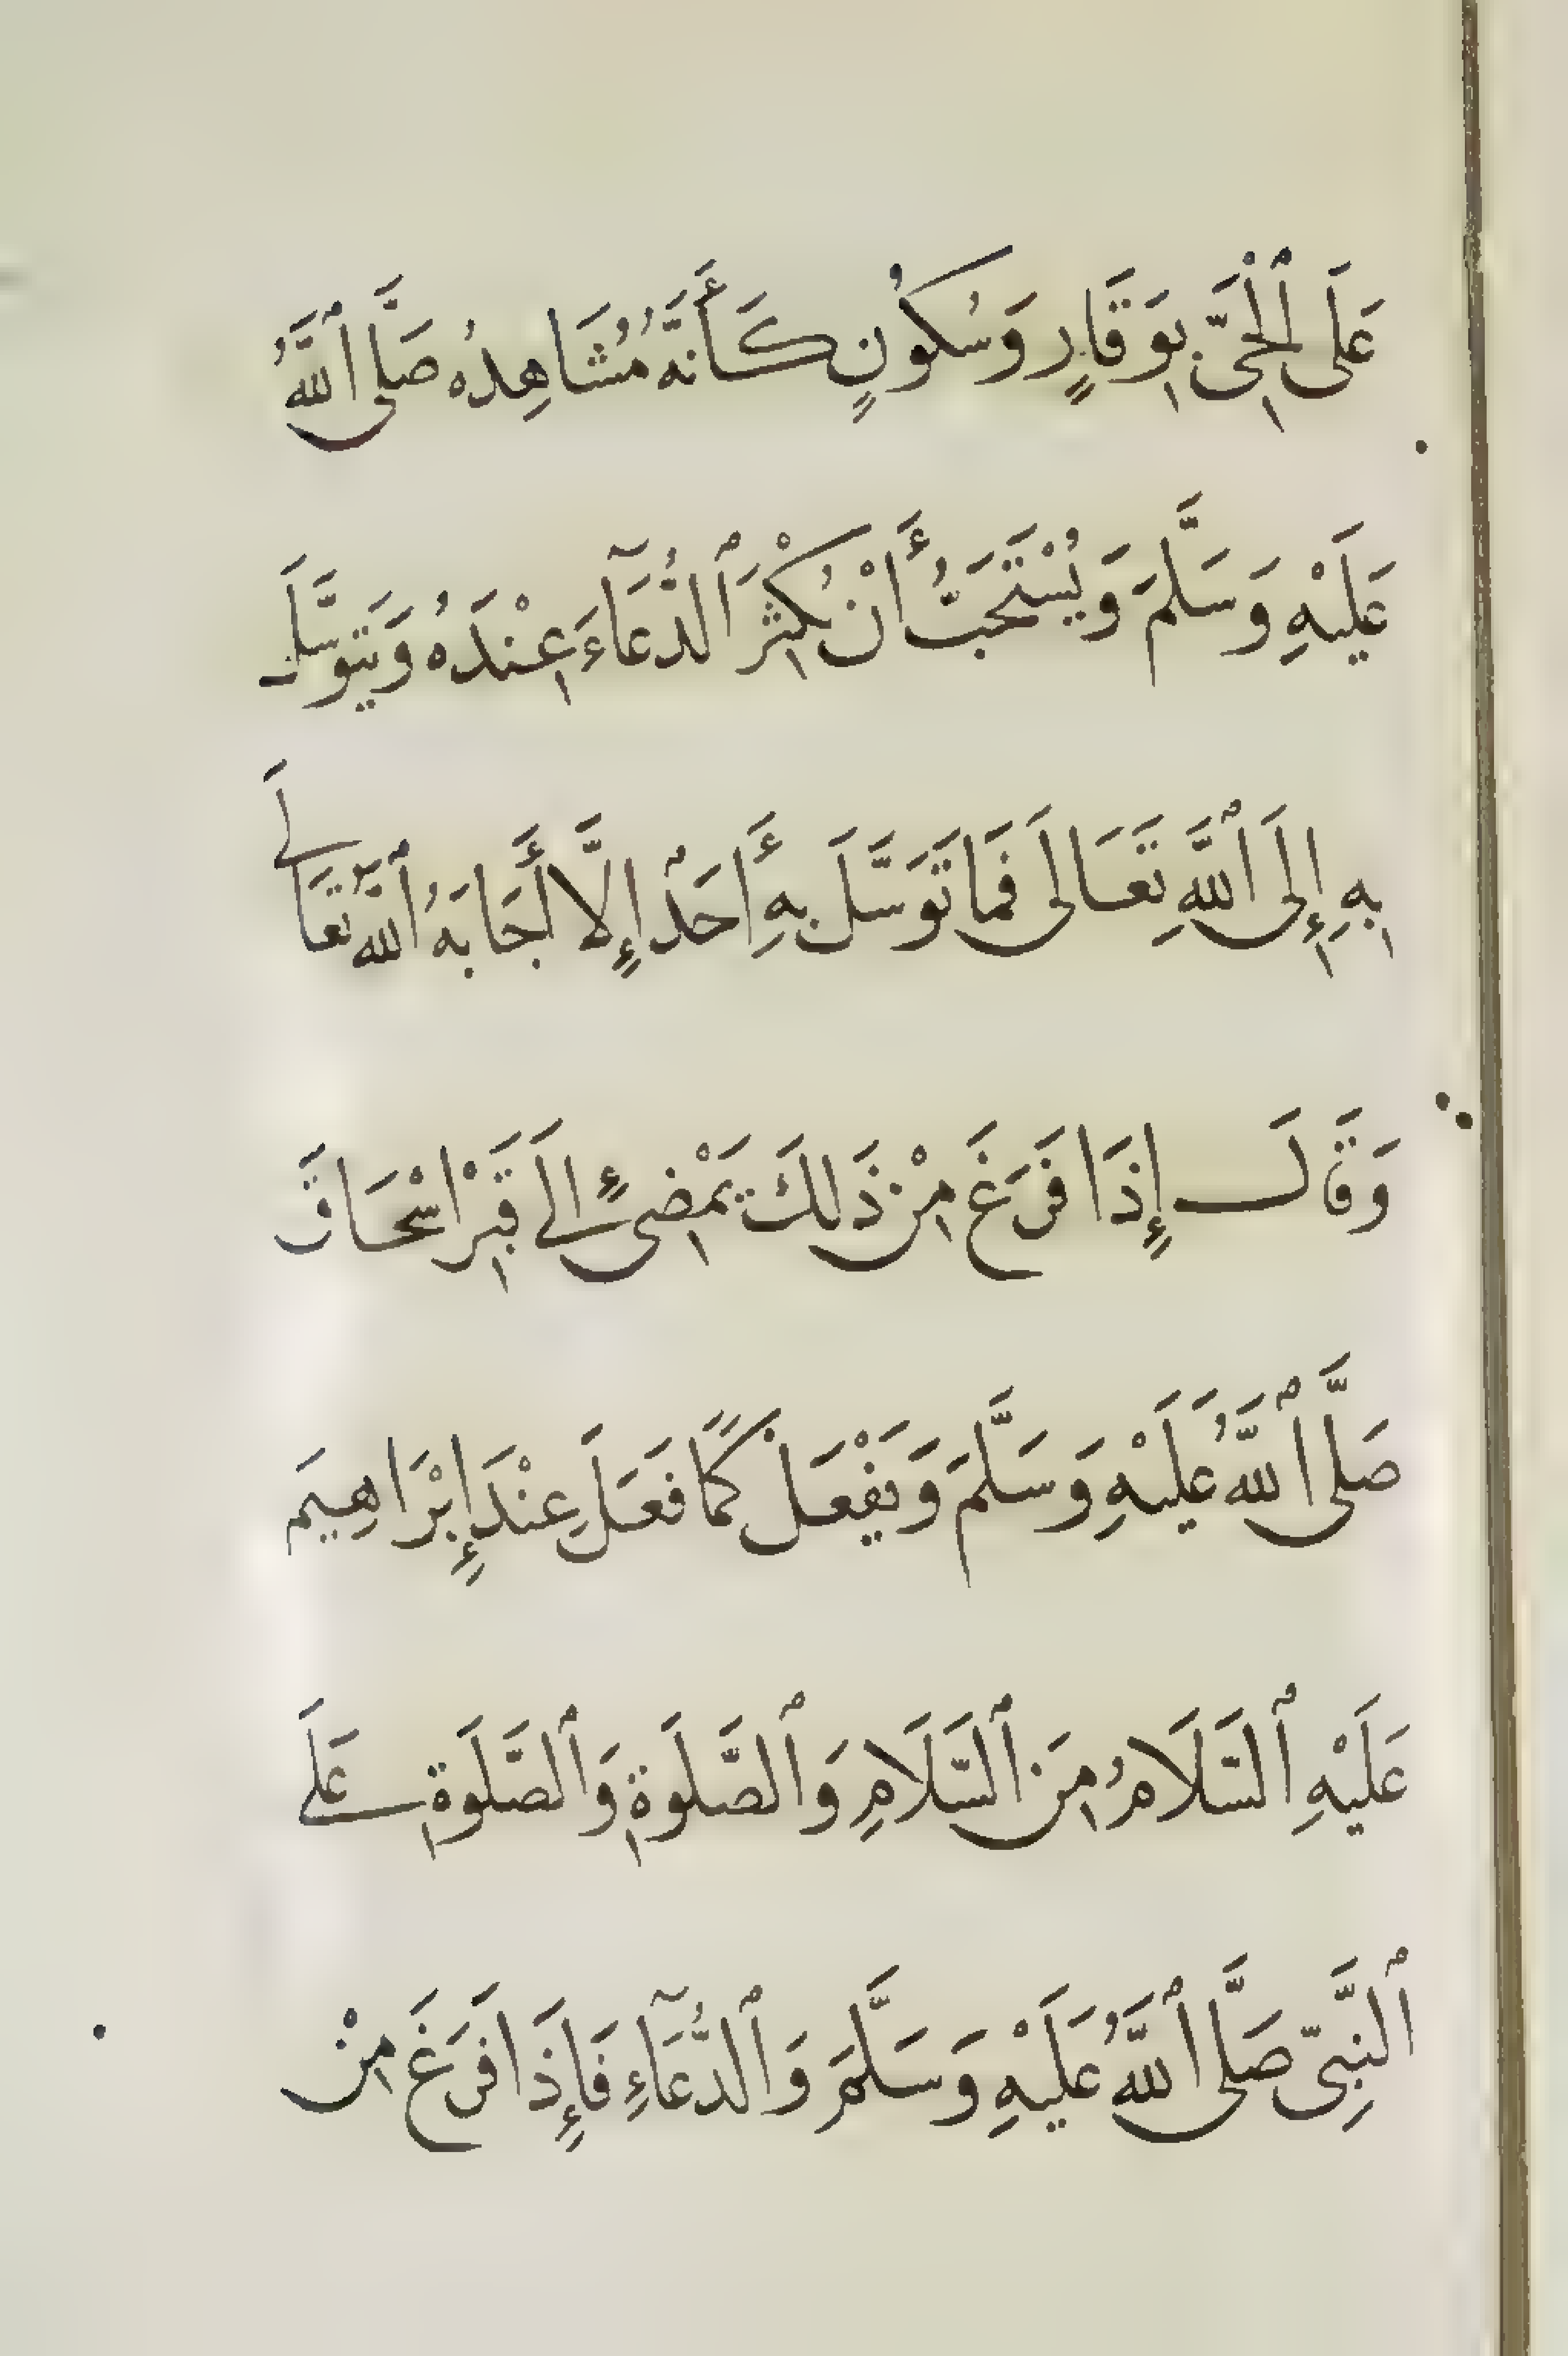 عَلَى ٱلْحَيِّ بِوَقَارٍ وَسُكُونٍ كَأَنَّهُ مُشَاهِدُهُ صَلَّى ٱللَّهُ
عَلَيْهِ وَسَلَّمَ وَيُسْتَحَبُّ أَنْ يُكْثِرَ ٱلدُّعَآءَ عِنْدَهُ وَيَتَوَسَّلَ
بِهِ إِلَى ٱللَّهِ تَعَالَى فَمَا تَوَسَّلَ بِهِ أَحَدٌ إِلَّا أَجَابَهُ ٱللَّهُ تَعَالَى
وَقَالَ إِذَا فَرَغَ مِنْ ذَلِكَ يَمْضِي إِلَى قَبْرِ اسْحَاقَ
صَلَّى ٱللَّهُ عَلَيْهِ وَسَلَّمَ وَيَفْعَلْ كَمَا فَعَلَ عِنْدَ إِبْرَاهِيمَ
عَلَيْهِ ٱلسَّلَامُ مِنَ ٱلسَّلَامِ وَٱلصَّلَوةِ وَٱلصَّلَوةِ عَلَى
ٱلنَّبِيِّ صَلَّى ٱللَّهُ عَلَيْهِ وَسَلَّمَ وَٱلدُّعَآءِ فَإِذَا فَرَغَ مِنْ